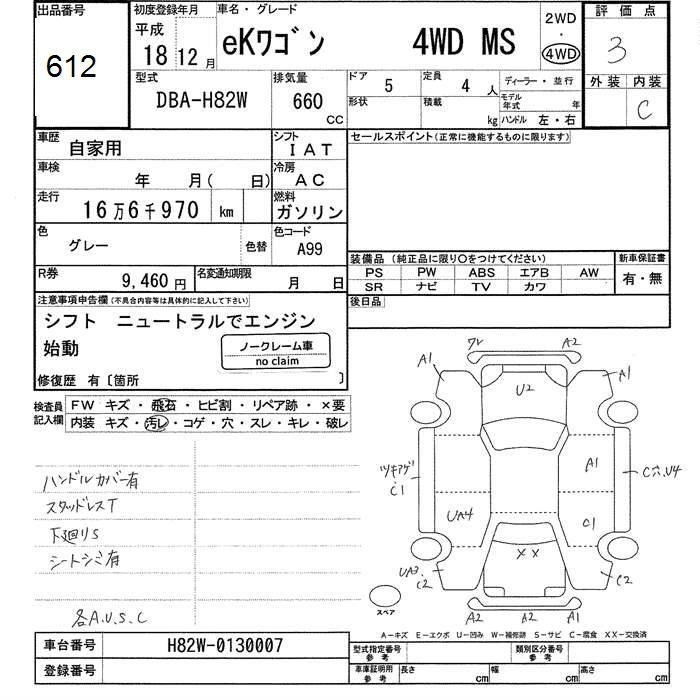 出品番号
612
初度登録年月
平成
18 12 月
車名・グレード
eKワゴン 4WD MS
2WD
・
4WD
評価点
3
外装 内装
C
型式
DBA-H82W
排気量
660
CC
ドア
5
定員
4 人
形状
積載
kg
ディーラー・並行
モデル年式 年
ハンドル 左・右
車歴
自家用
シフト
IAT
車検
年 月( 日)
冷房
AC
走行
16万6千970 km
燃料
ガソリン
色
グレー
色替
色コード
A99
R券
9,460 円
名変通知期限
月 日
セールスポイント(正常に機能するものに限ります)
装備品 (純正品に限り○をつけてください)
PS PW ABS エアB AW
SR ナビ TV カワ
新車保証書
有・無
後日品
注意事項申告欄(不具合内容等は具体的に記入して下さい)
シフト ニュートラルでエンジン
始動
ノークレーム車
no claim
修復歴 有〔箇所 〕
検査員記入欄
FW キズ・飛石・ヒビ割・リペア跡・×要
内装 キズ・汚レ・コゲ・穴・スレ・キレ・破レ
ハンドルカバー有
スタッドレスT
下廻りS
シートシミ有
各A.U.S.C
ワレ A2
A1 U2 A1
ツキアゲ C1
A1
C穴.U4
UA4
C1
XX
UA3. C2
C2
スペア
A2 A2 A1
A－キズ E－エクボ U－凹み W－補修跡 S－サビ C－腐食 XX－交換済
車台番号
H82W-0130007
登録番号
型式指定番号
参考
類別区分番号
参考
車庫証明用
参考
長さ cm
幅 cm
高さ cm